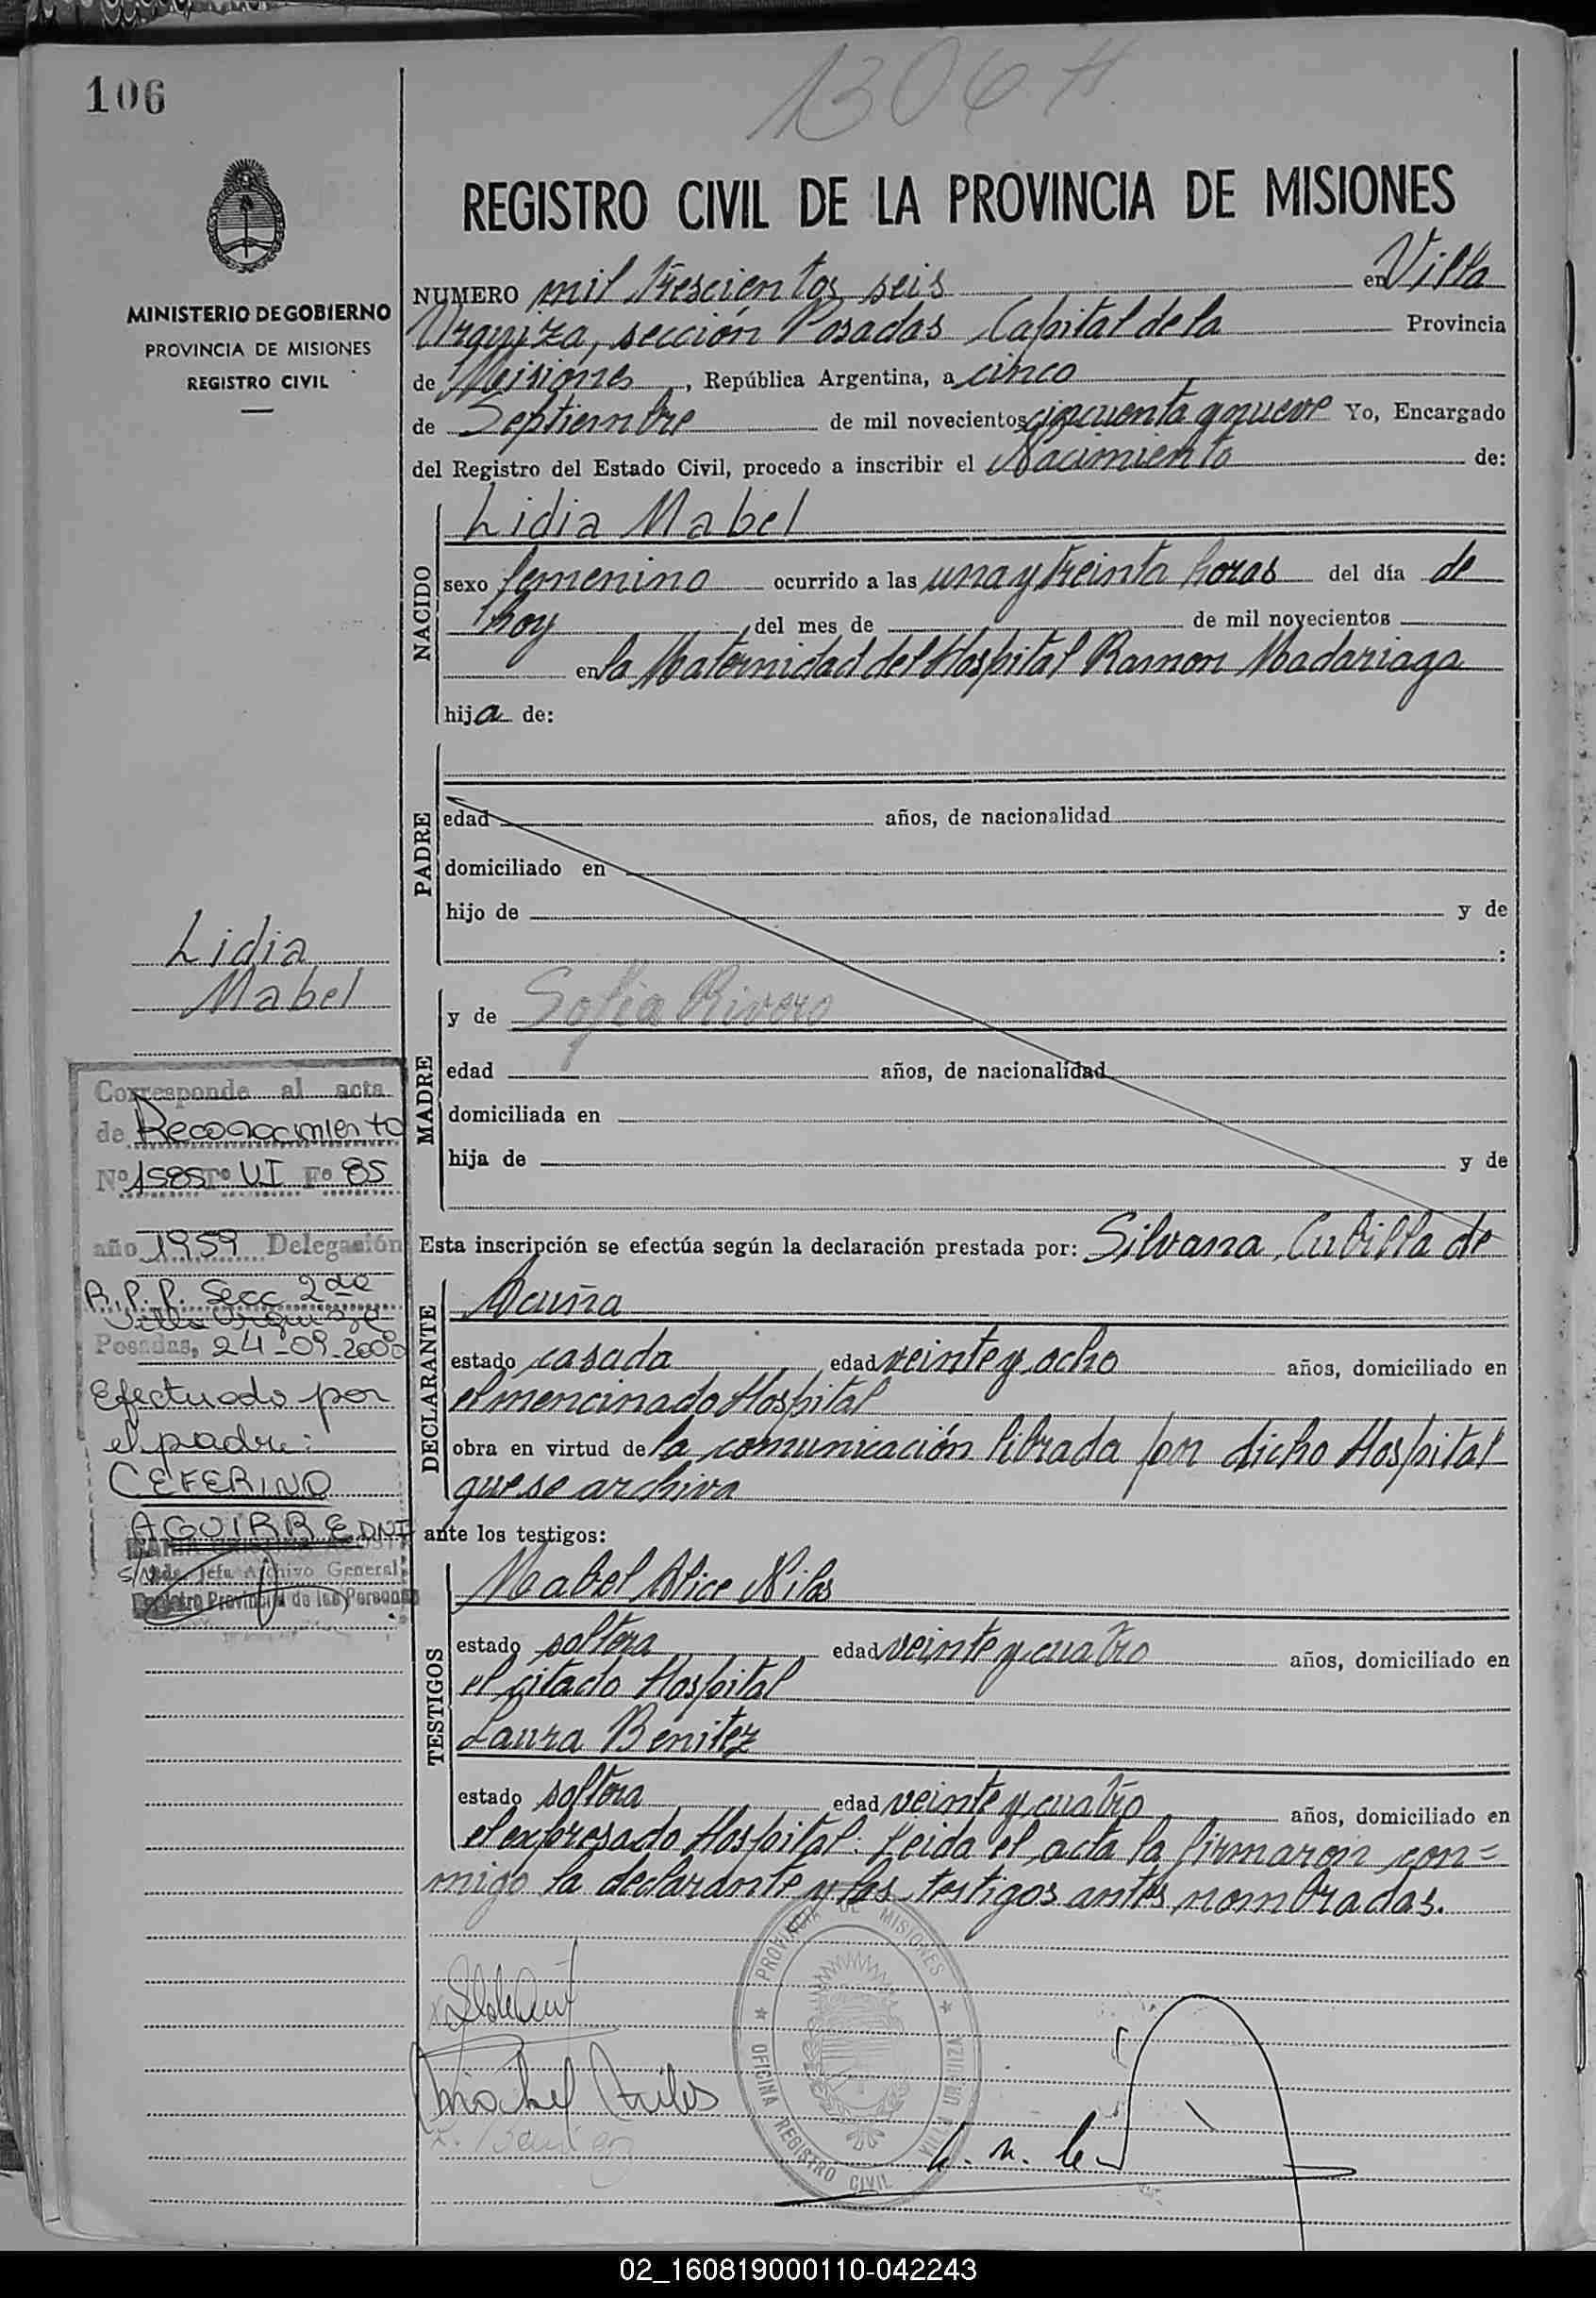 106
1306 H
MINISTERIO DE GOBIERNO
PROVINCIA DE MISIONES
REGISTRO CIVIL
REGISTRO CIVIL DE LA PROVINCIA DE MISIONES
NUMERO mil trescientos seis en Villa
Urquiza, sección Posadas Capital de la Provincia
de Misiones, República Argentina, a cinco
de Septiembre de mil novecientos cincuenta y nueve Yo, Encargado
del Registro del Estado Civil, procedo a inscribir el Nacimiento de:
NACIDO
Lidia Mabel
sexo femenino ocurrido a las una y treinta horas del día de
hoy del mes de de mil novecientos
en la Maternidad del Hospital Ramon Madariaga
hija de:
PADRE
edad años, de nacionalidad
domiciliado en
hijo de y de
:
MADRE
y de Sofia Rivero
edad años, de nacionalidad
domiciliada en
hija de y de
Esta inscripción se efectúa según la declaración prestada por: Silvana Cubilla de
DECLARANTE
Acuña
estado casada edad veinte y ocho años, domiciliado en
el mencinado Hospital
obra en virtud de la comunicación librada por dicho Hospital
que se archiva
ante los testigos:
TESTIGOS
Mabel Alice Niles
estado soltera edad veinte y cuatro años, domiciliado en
el citado Hospital
Laura Benitez
estado soltera edad veinte y cuatro años, domiciliado en
el expresado Hospital. Leida el acta la firmaron con=
migo la declarante y las testigos antes nombradas.
Lidia
Mabel
Corresponde al acta
de Reconocimiento
Nº 1585 Tº VI Fº 85
año 1959 Delegación
R.P.P. Secc 2da
Villa Urquiza
Posadas, 24-09-2000
Efectuado por
el padre:
CEFERINO
AGUIRRE DNI
S/N
Jefa Archivo General
Registro Provincial de las Personas
Mabel Niles
PROVINCIA DE MISIONES
OFICINA REGISTRO CIVIL
VILLA URQUIZA
02_160819000110-042243